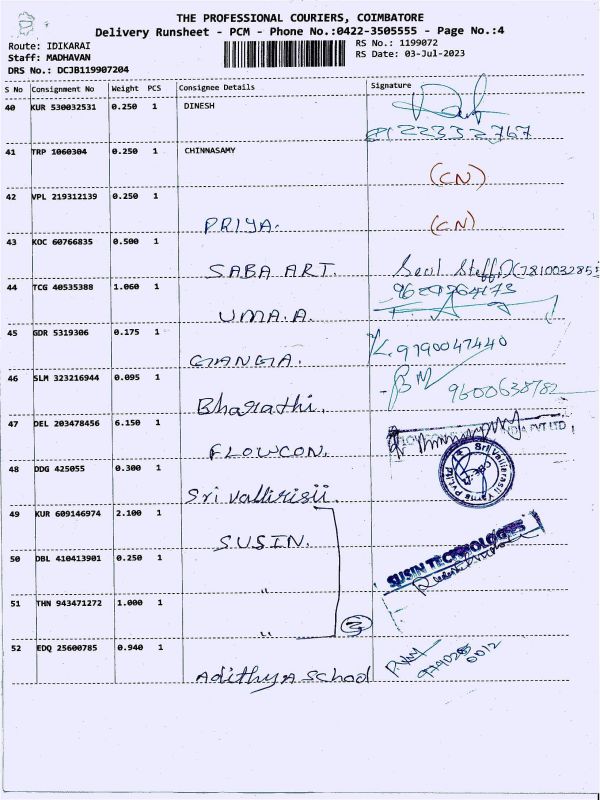 THE PROFESSIONAL COURIERS, COIMBATORE
Delivery Runsheet - PCM - Phone No.:0422-3505555 - Page No.:4
Route: IDIKARAI
RS No.: 1199072
Staff: MADHAVAN
RS Date: 03-Jul-2023
DRS No.: DCJB119907204
S No Consignment No Weight PCS Consignee Details Signature
40 KUR 530032531 0.250 1 DINESH
41 TRP 1060304 0.250 1 CHINNASAMY
(CN)
42 VPL 219312139 0.250 1
PRIYA. (CN)
43 KOC 60766835 0.500 1
SABA ART. Seal Staff
44 TCG 40535388 1.060 1
UMA.A.
45 GDR 5319306 0.175 1
GANGA. 9790047440
46 SLM 323216944 0.095 1
Bharathi. 9600638782
47 DEL 203478456 6.150 1
FLOWCON. PVT LTD
48 DDG 425055 0.300 1
Sri vallirisii. Sri Vallarasii Yarns Pvt Ltd
49 KUR 609146974 2.100 1
SUSIN.
50 DBL 410413901 0.250 1
" SUSIN TECHNOLOGIES
51 THN 943471272 1.000 1
" 3
52 EDQ 25600785 0.940 1
Adithya School